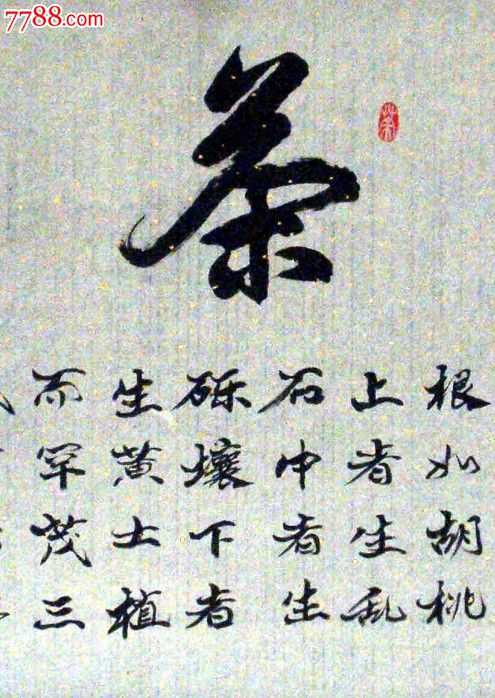 7788.com
茶
根如胡桃
上者生乱
石中者生
砾壤下者
生黄土植
而罕茂三